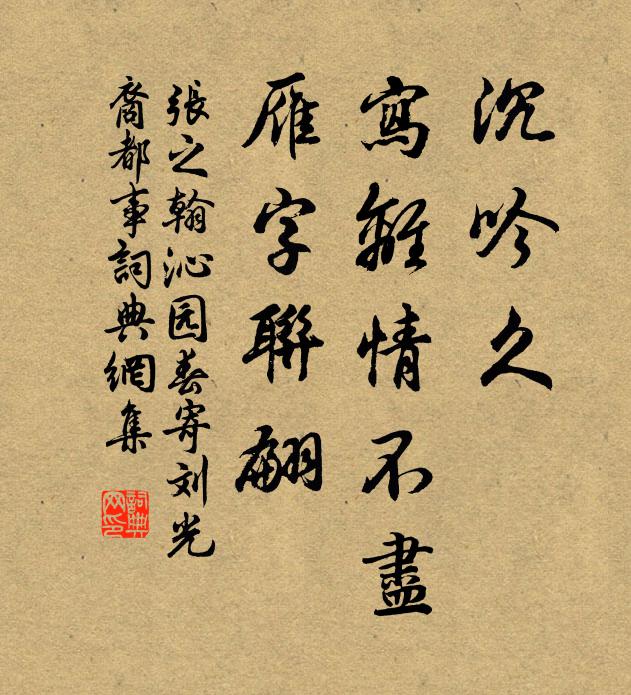 沉吟久
寫離情不盡
雁字聯翩
張之翰沁园春寄刘光
裔都事詞典網集
詞典
网印